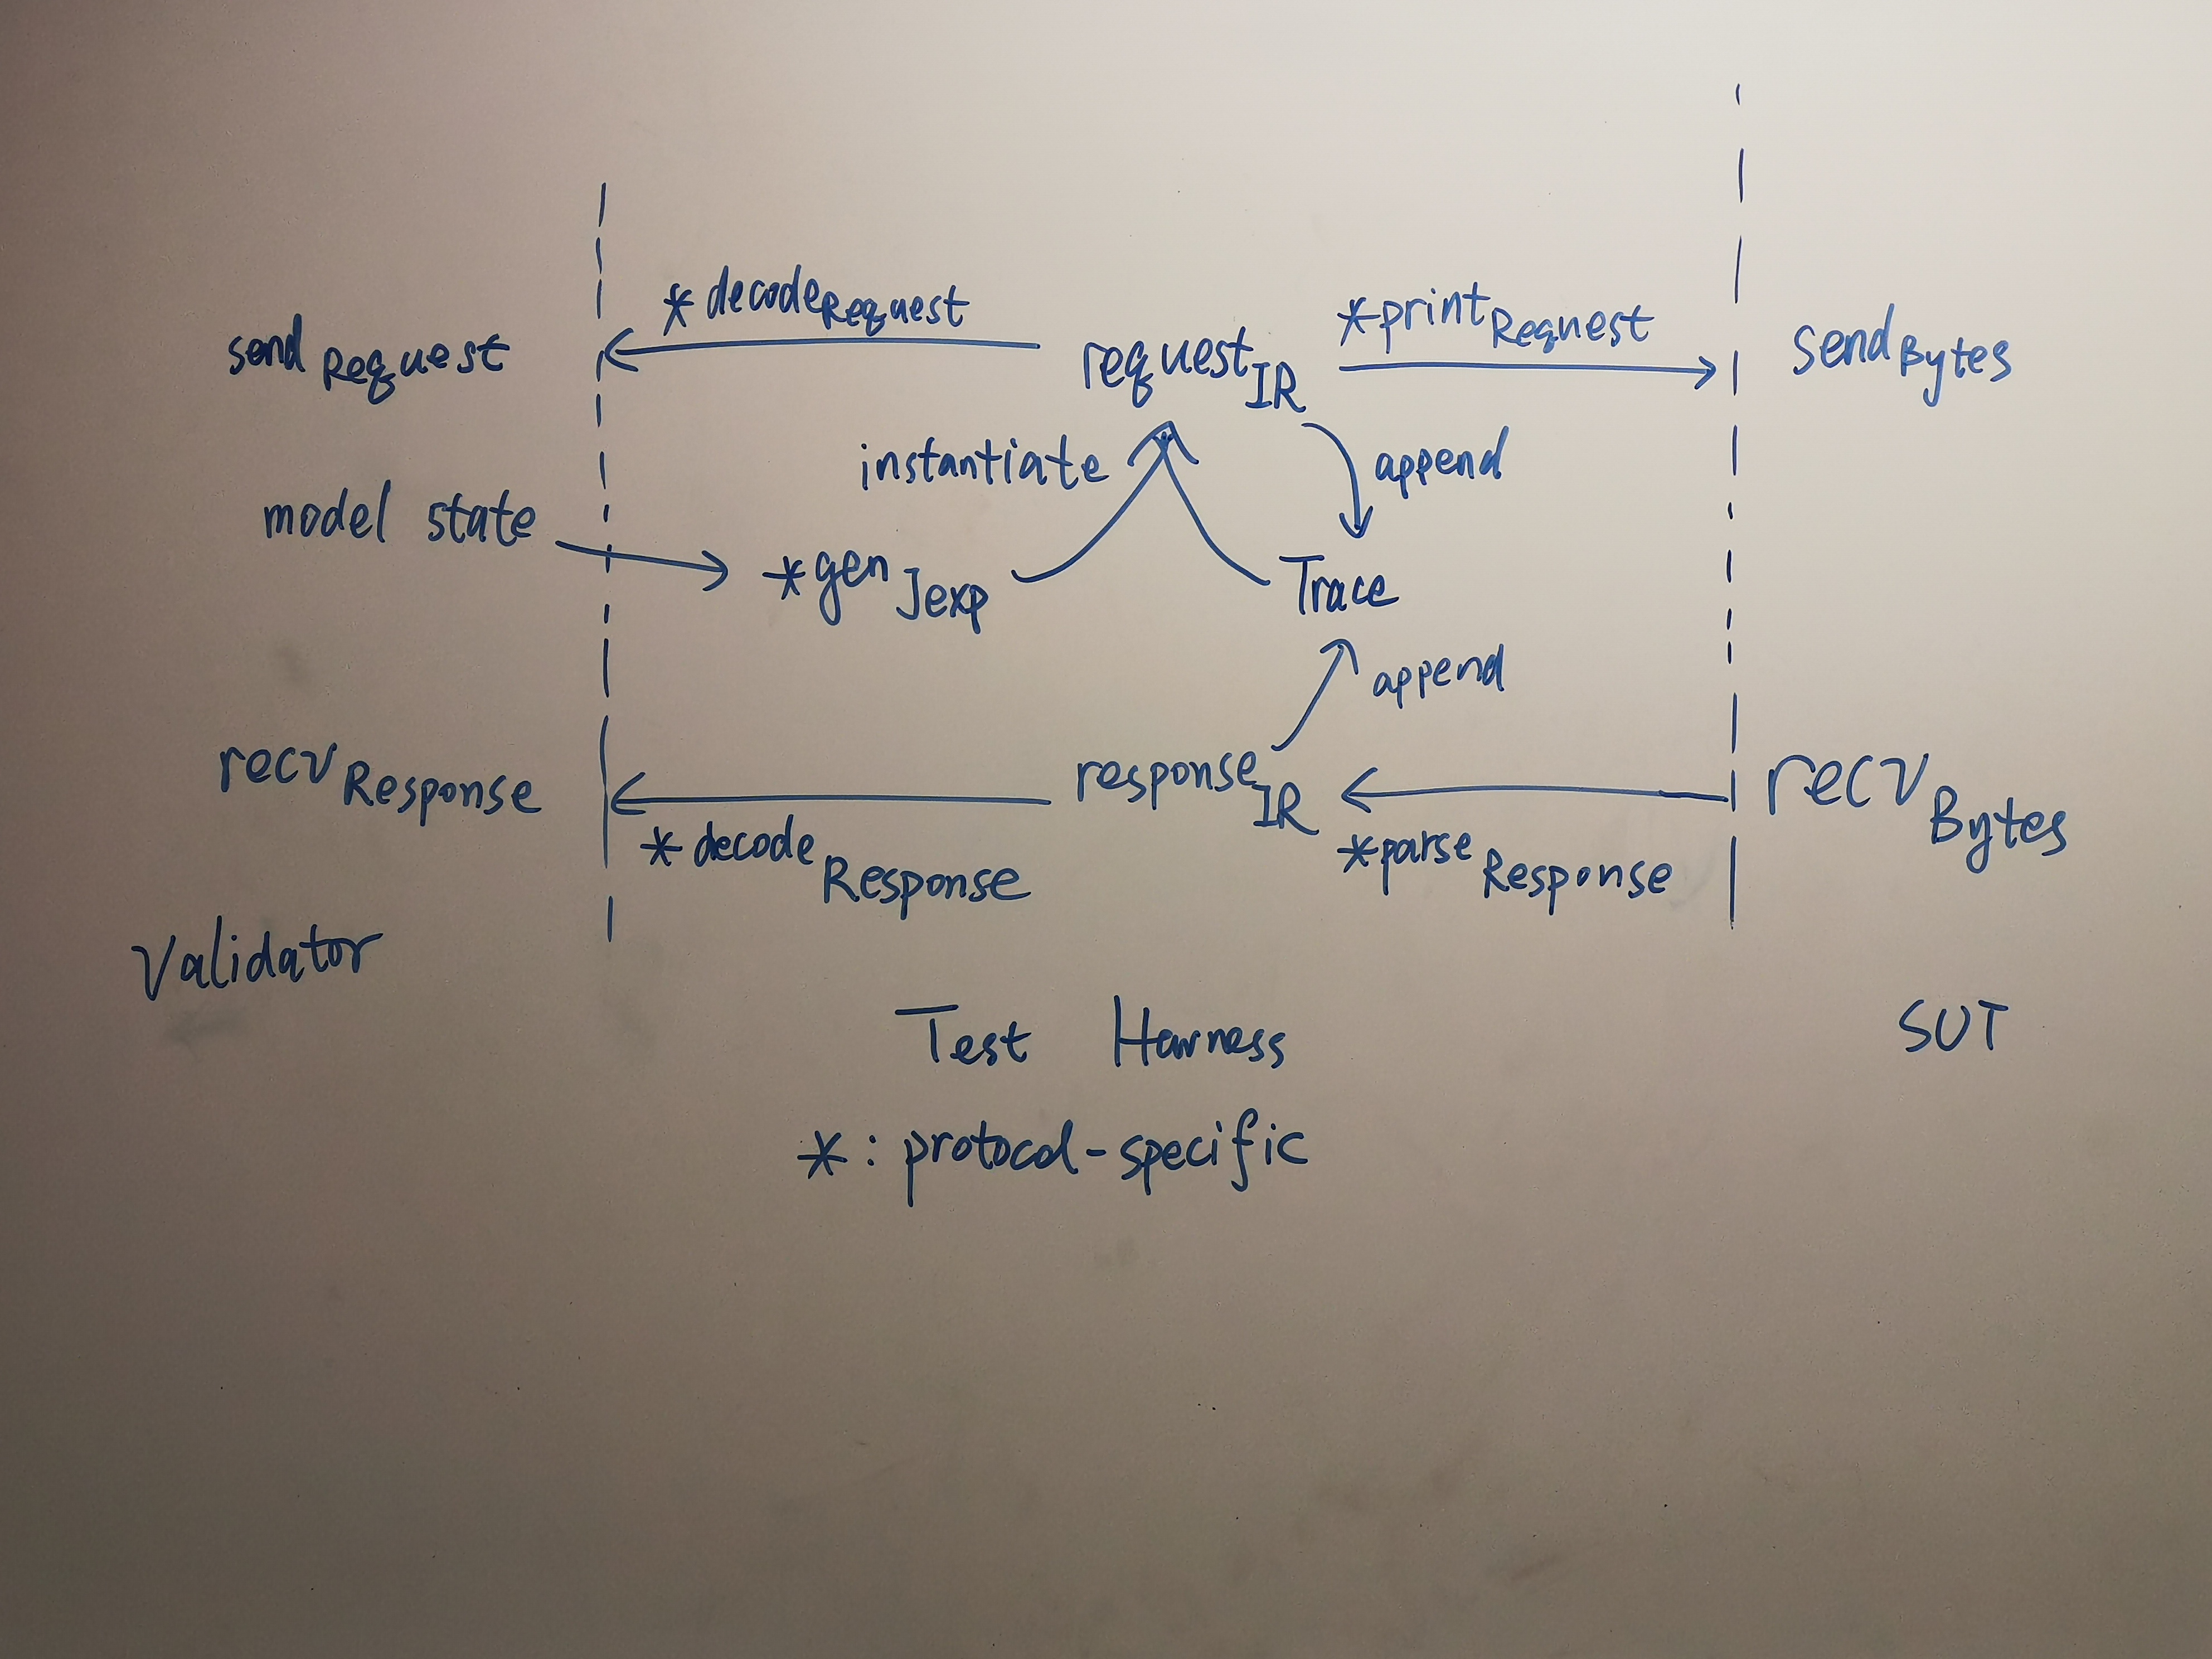 *decodeRequest
*printRequest
sendRequest
requestIR
sendBytes
instantiate
append
model state
*genJexp
Trace
append
recvResponse
responseIR
recvBytes
*decodeResponse
*parseResponse
Validator
Test Harness
SUT
*: protocol-specific